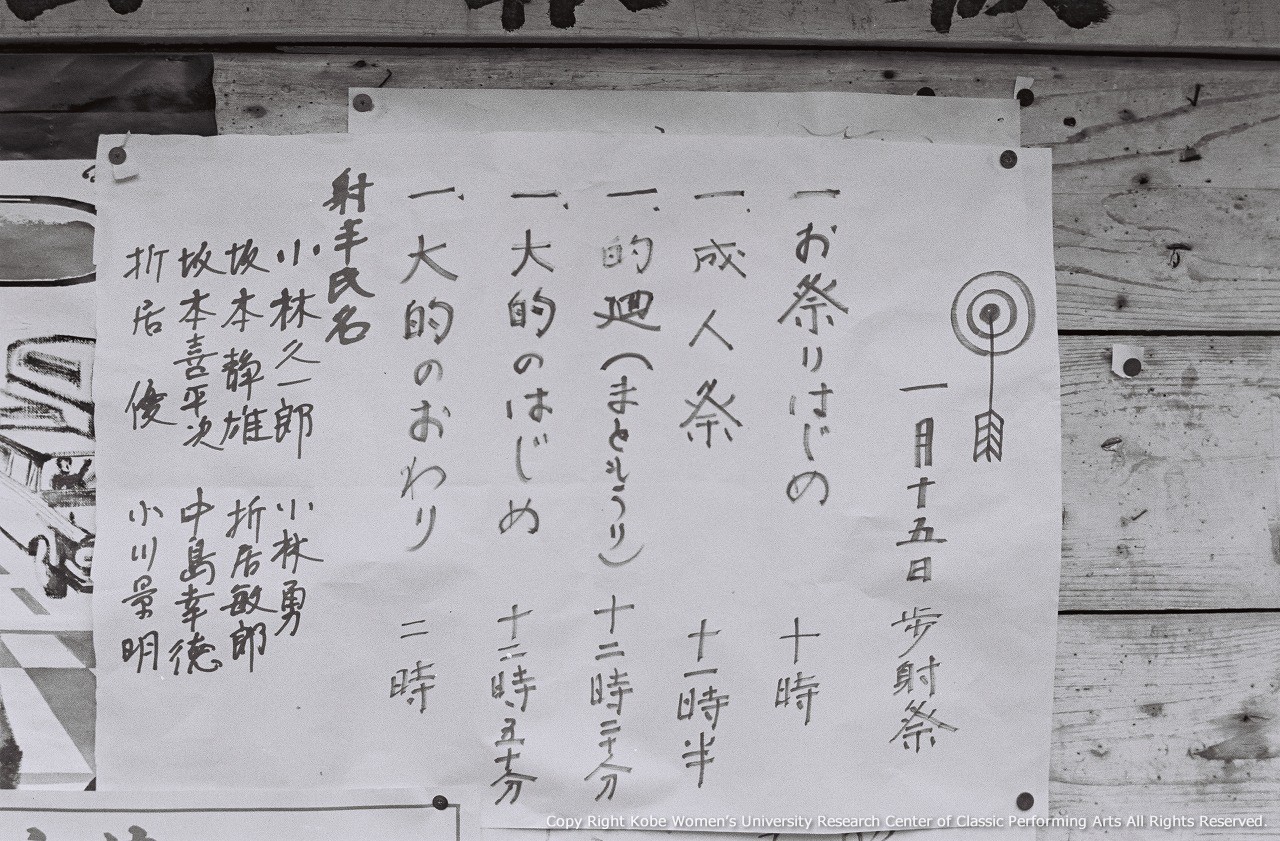 一月十五日 歩射祭
一 お祭りはじの 十時
一、成人祭 十一時半
一、的廻 十二時二十分
一、大的のはじめ 十二時五十分
一、大的のおわり 二時
射手氏名
小林久一郎 小林勇
坂本静雄 折居敏郎
坂本喜平次 中島幸徳
折居 優 小川景明
Copy Right Kobe Women's University Research Center of Classic Performing Arts All Rights Reserved.